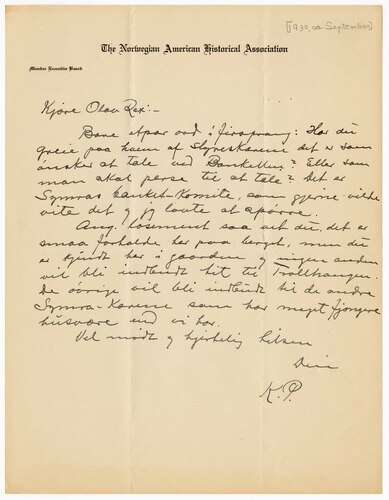 [1930, ca. September]
The Norwegian American Historical Association
Member Executive Board
Kjære Olav Rex:-
Bare et par ord i forsprang: Har du
greie paa hvem af Styreskarene det er som
ønsker at tale ved Banketten? Eller som
man skal perse til at tale? Det er
Symras banket-komite, som gjerne vilde
vite det og jeg lovte at spørre.
Ang. losement saa vet du, det er
smaa forholde her paa berget, men du
er kjendt her i gaarden og ingen anden
vil bli indbudt hit til Trollhaugen.
De øvrige vil bli indbudt til de andre
Symra-Karene som har meget finere
husvære end vi har.
Vel møtt og hjertelig hilsen
Din
K.P.